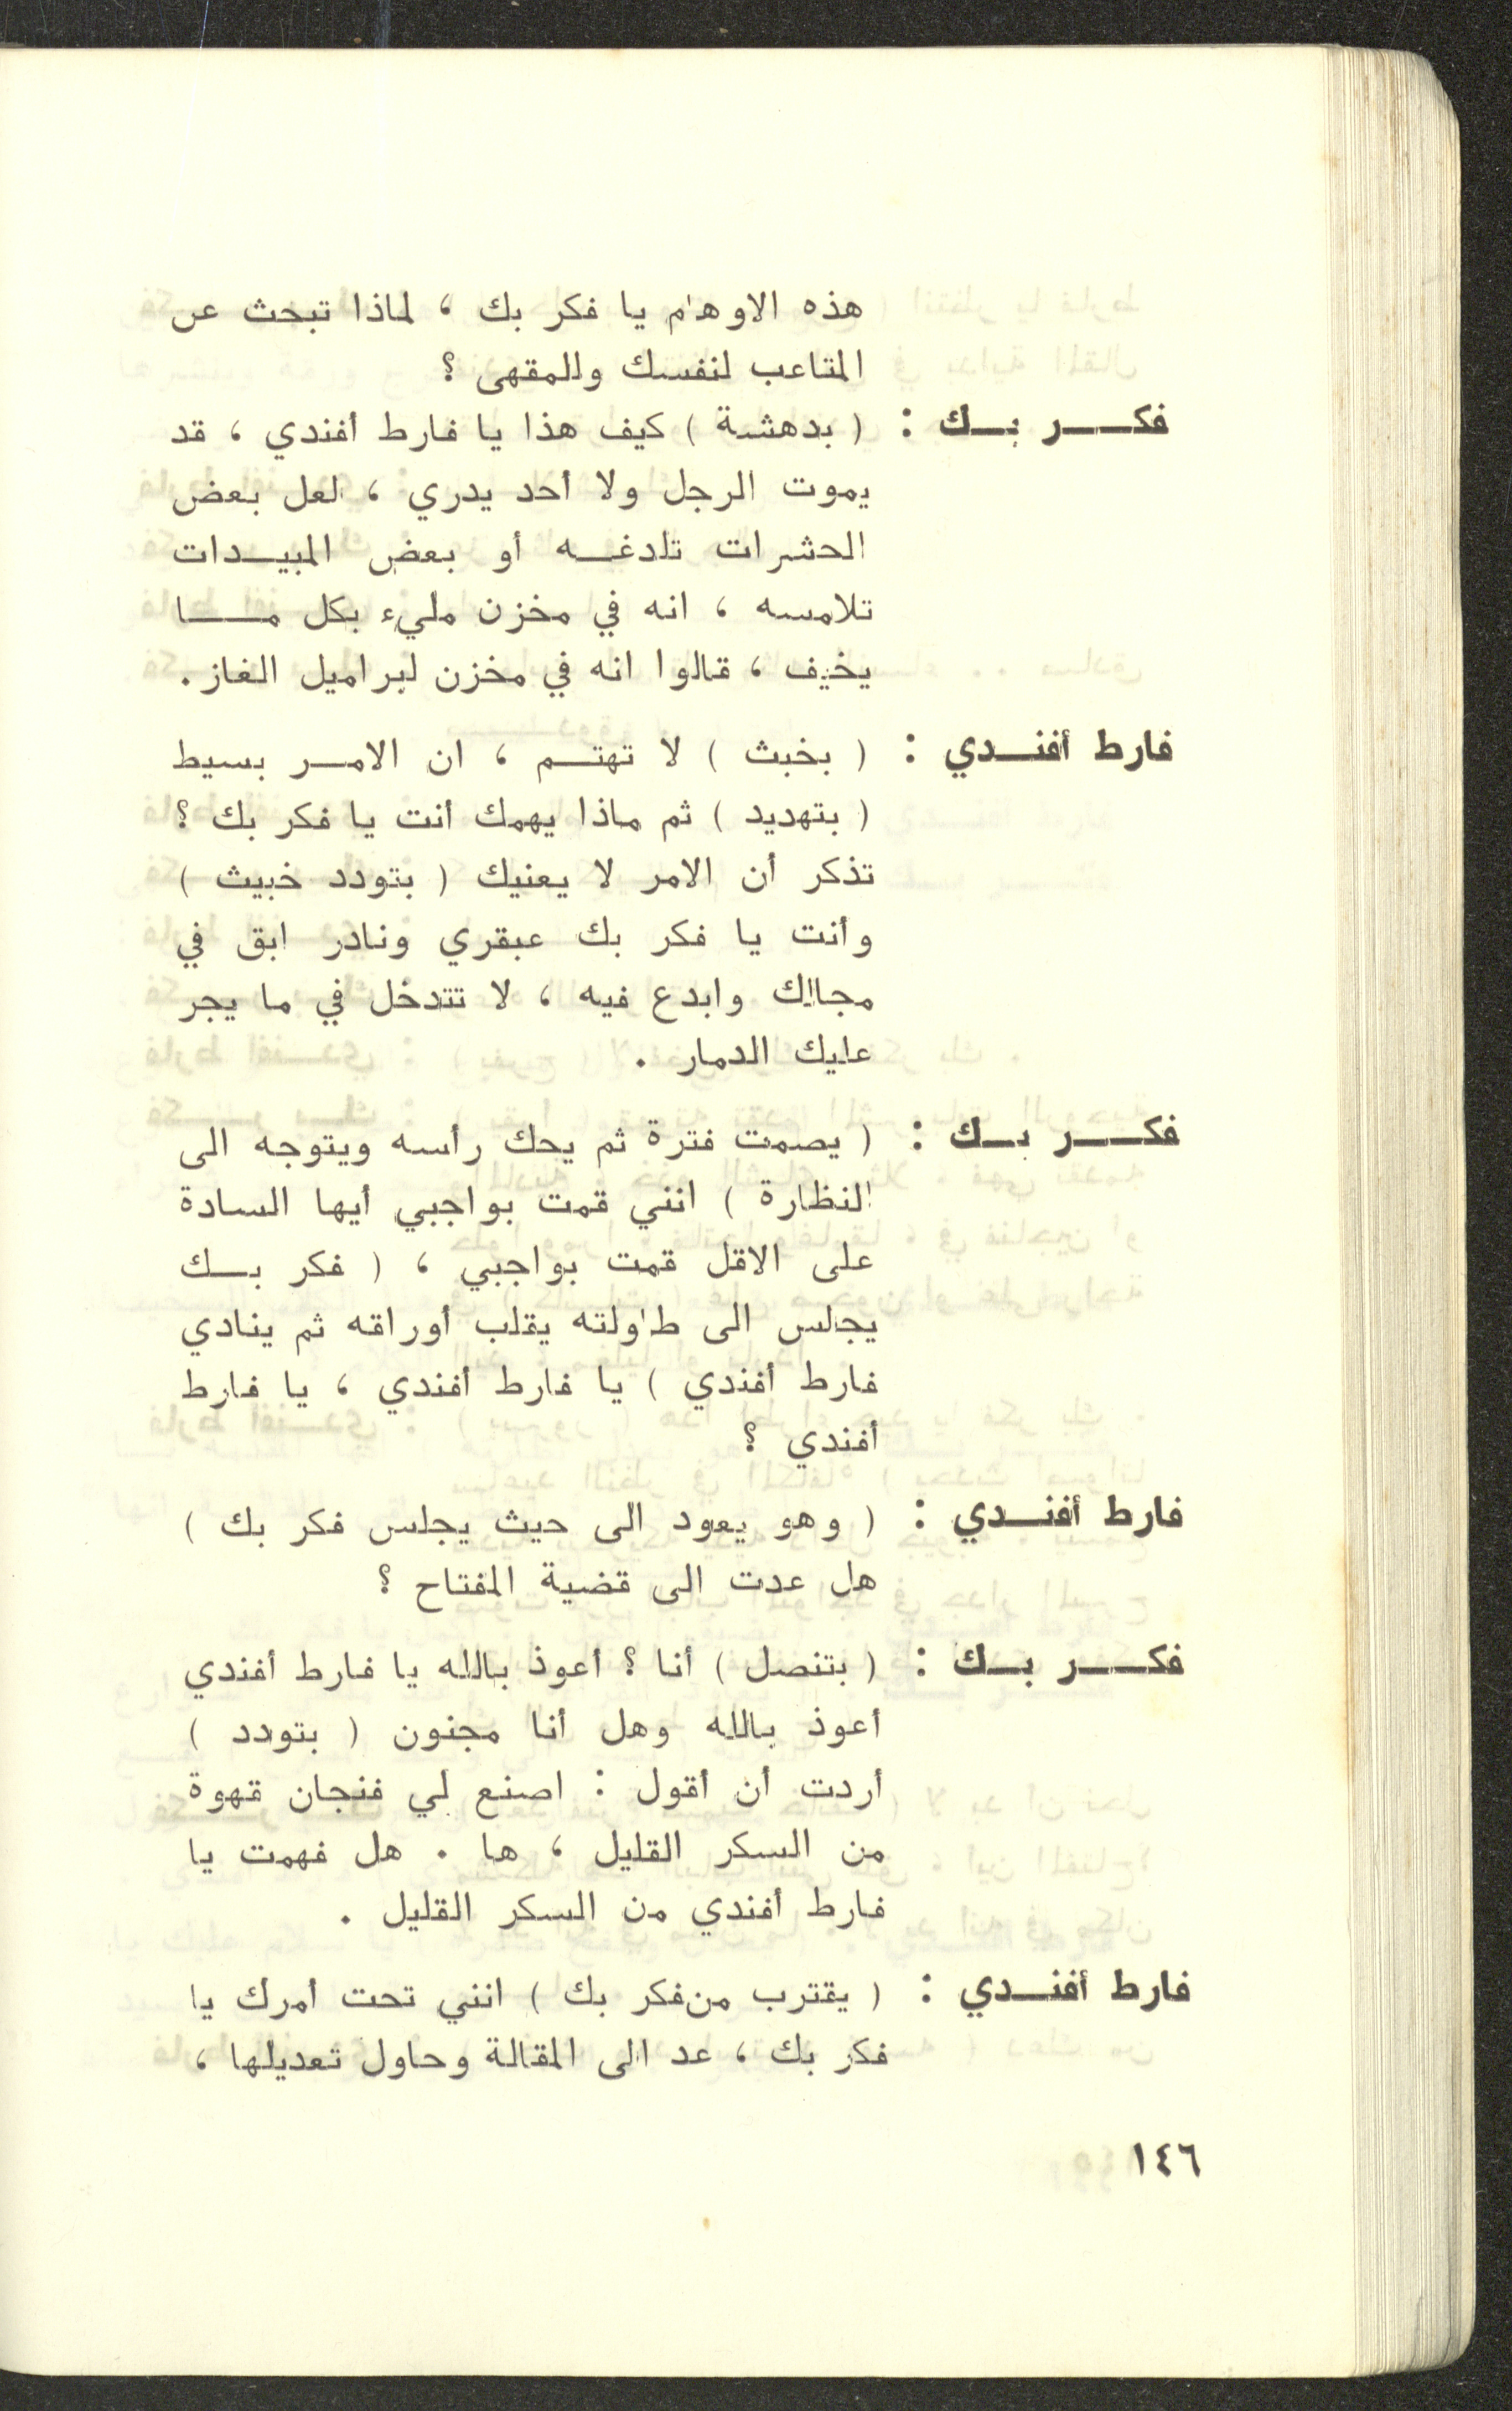 هذه الاوهام يا فكر بك ، لماذا تبحث عن
المتاعب لنفسك وللمقهى ؟
فكر بك : ( بدهشة ) كيف هذا يا فارط أفندي ، قد
يموت الرجل ولا أحد يدري ، لعل بعض
الحشرات تلدغه أو بعض المبيدات
تلامسه ، انه في مخزن مليء بكل ما
يخيف ، قالوا انه في مخزن لبراميل الغاز .
فارط أفندي : ( بخبث ) لا تهتم ، ان الامر بسيط
( بتهديد ) ثم ماذا يهمك أنت يا فكر بك ؟
تذكر أن الامر لا يعنيك ( بتودد خبيث )
وأنت يا فكر بك عبقري ونادر ابق في
مجالك وابدع فيه ، لا تتدخل في ما يجر
عليك الدمار .
فكر بك : ( يصمت فترة ثم يحك رأسه ويتوجه الى
النظارة ) انني قمت بواجبي أيها السادة
على الاقل قمت بواجبي ، ( فكر بك
يجلس الى طاولته يقلب أوراقه ثم ينادي
فارط أفندي ) يا فارط أفندي ، يا فارط
أفندي ؟
فارط أفندي : ( وهو يعود الى حيث يجلس فكر بك )
هل عدت الى قضية المفتاح ؟
فكر بك : ( بتنصل ) أنا ؟ أعوذ بالله يا فارط أفندي
أعوذ بالله وهل أنا مجنون ( بتودد )
أردت أن أقول : اصنع لي فنجان قهوة
من السكر القليل ، ها . هل فهمت يا
فارط أفندي من السكر القليل .
فارط أفندي : ( يقترب من فكر بك ) انني تحت أمرك يا
فكر بك ، عد الى المقالة وحاول تعديلها ،
١٤٦